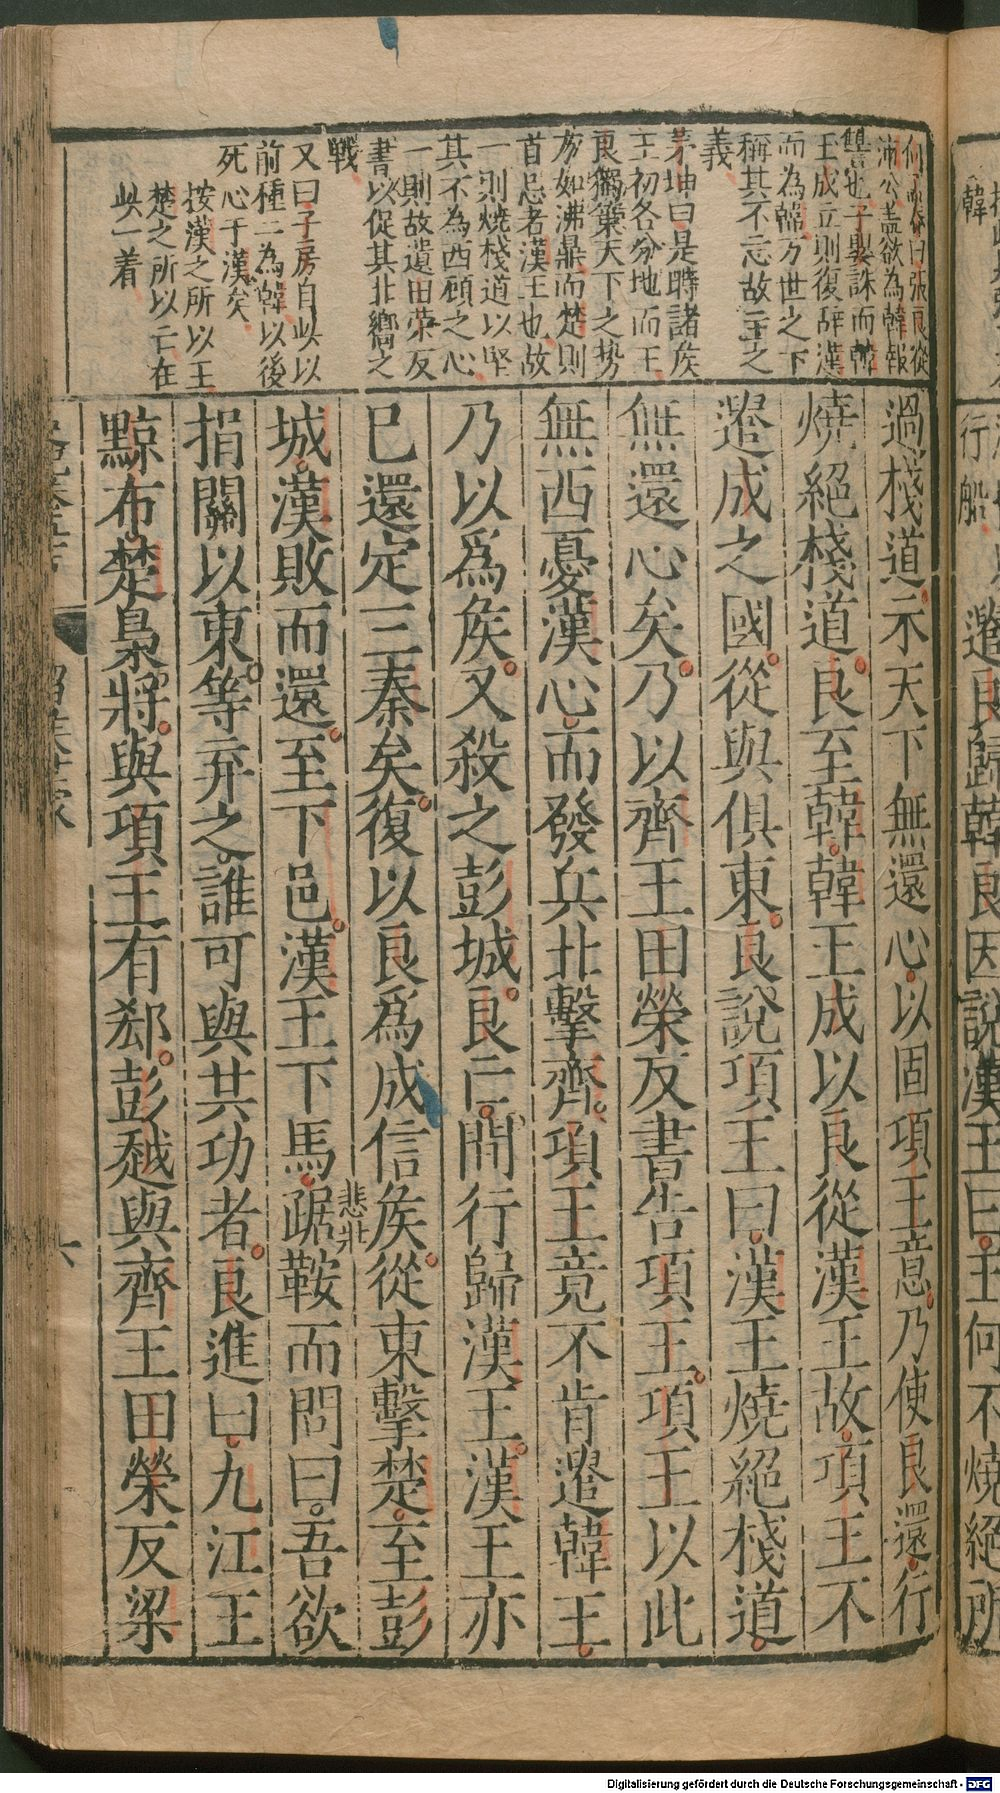 何孟春曰張良從
沛公蓋欲為韓報
讐也子嬰誅而韓
王成立則復辭漢
而為韓万世之下
稱其不忘故主之
義
茅坤曰是時諸矦
王初各分地而王
良獨策天下之势
方如沸鼎而楚則
首忌者漢王也故
一則燒棧道以堅
其不為西顧之心
一則故遺田荣反
書以促其北嚮之
戰
又曰子房自此以
前種一為韓以後
死心于漢矣
按漢之所以王
楚之所以亡在
此一着
過棧道示天下無還心以固項王意乃使良還行
燒絕棧道良至韓韓王成以良從漢王故項王不
遣成之國從與俱東良說項王曰漢王燒絕棧道
無還心矣乃以齊王田榮反書告項王項王以此
無西憂漢心而發兵北擊齊項王竟不肯遣韓王
乃以爲矦又殺之彭城良亡間行歸漢王漢王亦
已還定三秦矣復以良爲成信矦從東擊楚至彭
悲壯
城漢敗而還至下邑漢王下馬踞鞍而問曰吾欲
捐關以東等弃之誰可與共功者良進曰九江王
黥布楚梟將與項王有郄彭越與齊王田榮反梁
六
韓
行船
遣良歸韓良因說漢王曰王何不燒絕所
Digitalisierung gefördert durch die Deutsche Forschungsgemeinschaft - DFG